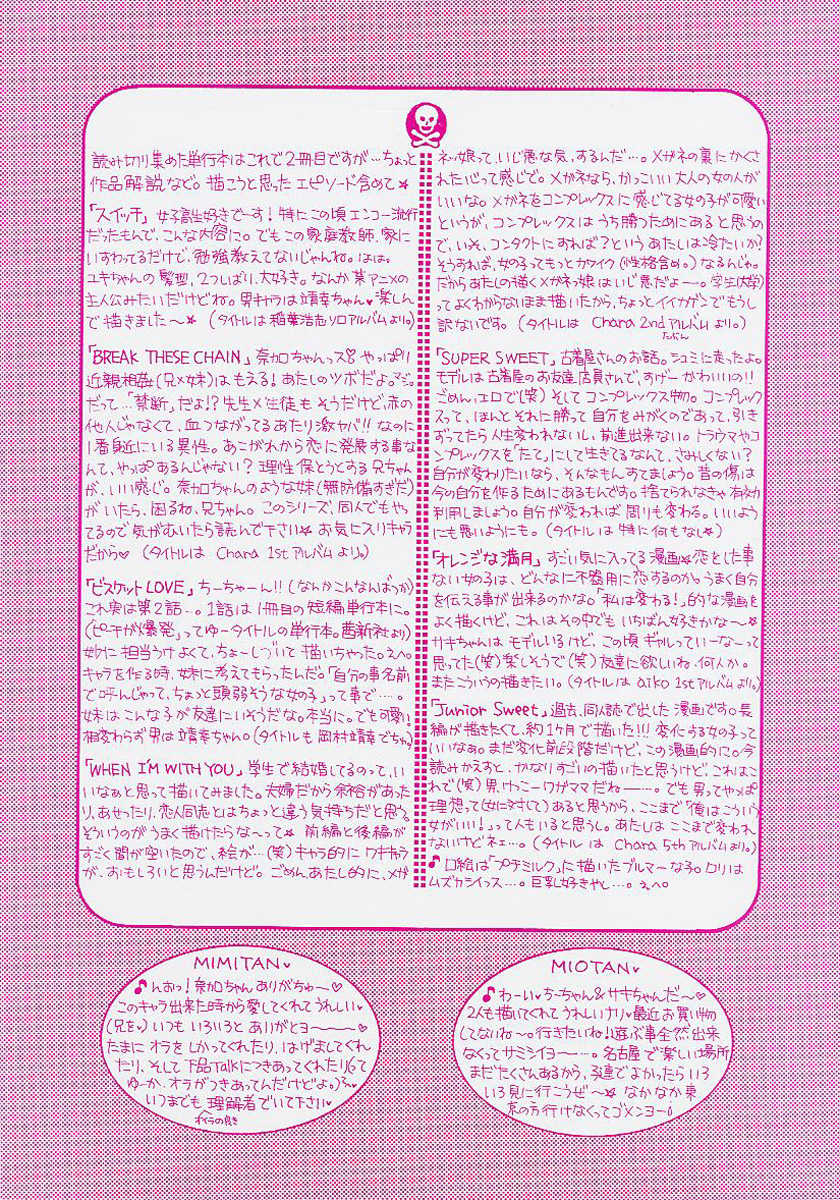 読み切り集めた単行本はこれで2冊目ですが…ちょっと
作品解説など。描こうと思ったエピソード含めて★
「スイッチ」女子高生好きでーす!特にこの頃エンコー流行
だったもんで、こんな内容に。でもこの家庭教師、家に
いすわってるだけで、勉強教えてないじゃんね。ほほ。
ユキちゃんの髪型、2つしばり、大好き。なんか某アニメの
主人公みたいだけどね。男キャラは靖幸ちゃん♥楽しん
で描きました〜★(タイトルは稲葉浩志ソロアルバムより。)
「BREAK THESE CHAIN」奈加ちゃんっス♡やっぱり
近親相姦(兄×妹)はもえる!あたしのツボだよ。マジ。
だって…「禁断」だよ!?先生×生徒もそうだけど、赤の
他人じゃなくて、血つながってるあたり激ヤバ!!なのに
1番身近にいる異性。あこがれから恋に発展する事な
んて、やっぱあるんじゃない?理性保とうとする兄ちゃん
が、いい感じ。奈加ちゃんのような妹(無防備すぎだ)
がいたら、困るね、兄ちゃん。このシリーズ、同人でもや
てるので気がすいたら読んで下さい★お気に入りキャラ
だから♥(タイトルは Chara 1stアルバムより。)
「ビスケットLOVE」ちーちゃーん!!(なんかこんなんばっか)
これ実は第2話…。1話は1冊目の短編単行本に。
(「ピーチが爆発」ってゆータイトルの単行本。茜新社より)
妙に担当うけよくて、ちょーしづいて描いちゃった。えへ。
キャラを作る時、妹に考えてもらったんだ。「自分の事名前
で呼んじゃって、ちょっと頭弱そうな女の子」って事で…。
妹はこんな子が友達にいそうだな。本当に。でも可愛い
相変わらず男は靖幸ちゃん。(タイトルも岡村靖幸でちゅ)
「WHEN I'M WITH YOU」学生で結婚してるのって、い
いなぁと思って描いてみました。夫婦だから余裕があった
り、あせったり、恋人同志とはちょっと違う気持ちだと思う。
そういうのがうまく描けたらな〜って★ 前編と後編が
すごく間が空いたので、絵が…(笑)キャラ的にワキキャラ
が、おもしろいと思うんだけど。ごめん、あたし的に、メガ
ネっ娘って、いじ悪な気、するんだ…。メガネの裏にかくさ
れた心って感じで。メガネなら、かっこいい大人の女の人が
いいな。メガネをコンプレックスに感じてる女の子が可愛い
というが、コンプレックスはうち勝つためにあると思うの
で、いっそ、コンタクトにすれば?というあたしは冷たいか?
そうすれば、女の子ってもっとカワイク(性格含め。)なるんじゃ。
だからあたしの描くメガネっ娘はいじ悪だよ〜。学生(大学)
ってよくわからないまま描いたから、ちょっとイイカゲンでもうし
訳ないです。(タイトルは Chara 2ndアルバムより。)
たぶん
「SUPER SWEET」古着屋さんのお話。シュミに走ったよ。
モデルは古着屋のお友達店員さんで、すげーかわいいの!!
ごめん、エロで(笑)そしてコンプレックス物。コンプレック
スって、ほんとそれに勝って自分をみがくのであって、引き
ずってたら人生変われないし、前進出来ない。トラウマやコ
ンプレックスを「たて」にして生きてるなんて、さみしくない?
自分が変わりたいなら、そんなもんすてましょう。昔の傷は
今の自分を作るためにあるもんです。捨てられなきゃ有効
利用しましょう。自分が変われば周りも変わる。いいよう
にも悪いようにも。(タイトルは特に何もなし★)
「オレンジな満月」すごい気に入ってる漫画★恋をした事
ない女の子は、どんなに不器用に恋するのか。うまく自分
を伝える事が出来るのかな。「私は変わる!」的な漫画を
よく描くけど、これはその中でもいちばん好きかな〜★
サキちゃんはモデルいるけど、この頃ギャルってい〜な〜って
思ってた(笑)楽しそうで(笑)友達に欲しいね。何人か。
またこういうの描きたい。(タイトルは aiko 1stアルバムより。)
「Junior Sweet」過去、同人誌で出した漫画です。長
編が描きたくて、約1ヶ月で描いた!!!変化する女の子って
いいなぁ。まだ変化前段階だけど、この漫画的に。今
読みかえすと、かなりすごいの描いたと思うけど、これはこ
れで(笑)男、けっこーワガママだねー…。でも男ってやっぱ
理想って(女に対して)あると思うから、ここまで「俺はこういう
女がいい!」って人もいると思うし。あたしはここまで変われ
ないけどネェ…。(タイトルは Chara 5thアルバムより。)
♪口絵は「プチミルク」に描いたブルマーな子。ロリは
ムズカシイっス…。巨乳好きやし…。えへ。
MIMITAN♥
♪んおっ!奈加ちゃんありがちゅ〜♡
このキャラ出来た時から愛してくれてうれしい♥
(兄を♥)いつもいろいろとありがとヨ〜〜♡
たまにオラをしかってくれたり、はげましてくれ
たり、そして下品Talkにつきあってくれたり(って
ゆーか、オラがつきあってんだけどよ。)ろ、
いつまでも理解者でいて下さい♥
オイラの良き
MIOTAN♥
♪わーい♥ちーちゃん&サキちゃんだ〜♡
2人も描いてくれてうれしいナリ♥最近お買い物
してないね〜。行きたいね!遊ぶ事全然出来
なくってサミシイヨー…。名古屋で楽しい場所
まだたくさんあるから、発達でよかったらいろ
いろ見に行こうぜ〜★なかなか東
京の方行けなくってゴメンヨー